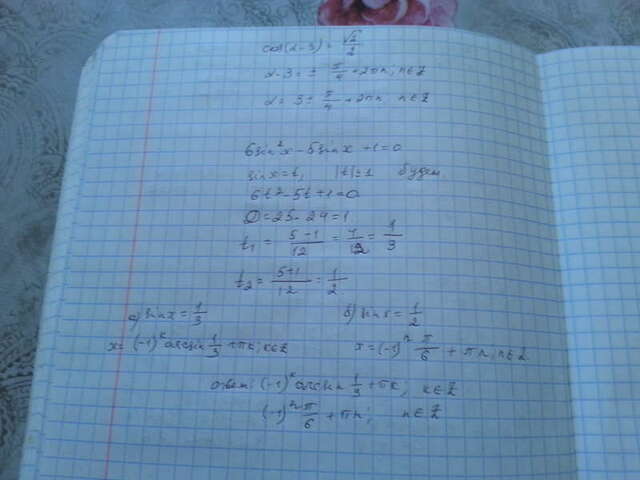 cos(α-3) = √2/2
α-3 = ± π/4 + 2πn; n∈Z
α = 3 ± π/4 + 2πn n∈Z
6sin²x - 5sinx + 1 = 0
sinx = t, |t| = 1 будем
6t² - 5t + 1 = 0
D = 25 - 24 = 1
t₁ = (5-1)/12 = 4/12 = 1/3
t₂ = (5+1)/12 = 1/2
а) sinx = 1/3 б) sinx = 1/2
x = (-1)ᵏ arcsin 1/3 + πk; k∈Z x = (-1)ⁿ π/6 + πn; n∈Z
ответ: (-1)ᵏ arcsin 1/3 + πk; k∈Z
(-1)ⁿ π/6 + πn; n∈Z